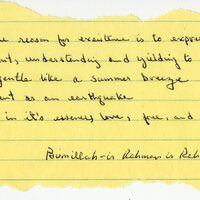 reason for existence is to
understanding and yielding to
gentle like a summer breeze
as an earthquake
in it's essence love, fire, and
Bismillah-ir Rahman ir Rah